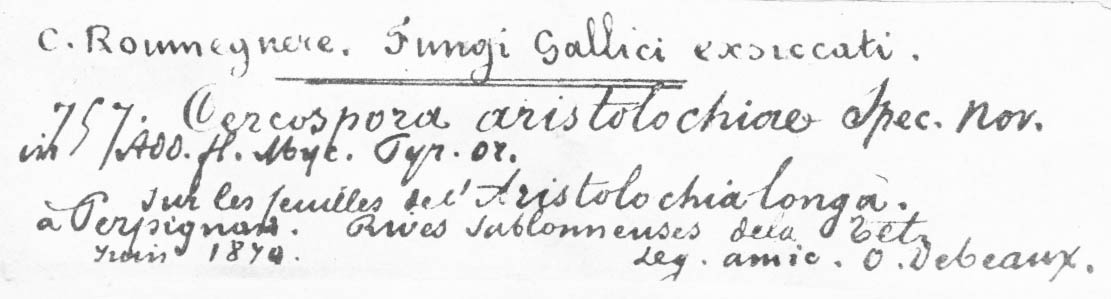 C. Roumeguere. Fungi Gallici exsiccati.
757. Cercospora aristolochiae Spec. nov.
in Add. fl. Myc. Pyr. or.
Sur les feuilles de l'Aristolochia longa.
à Perpignan. Rives sablonneuses de la Tet
Juin leg. amic. O. Debeaux.